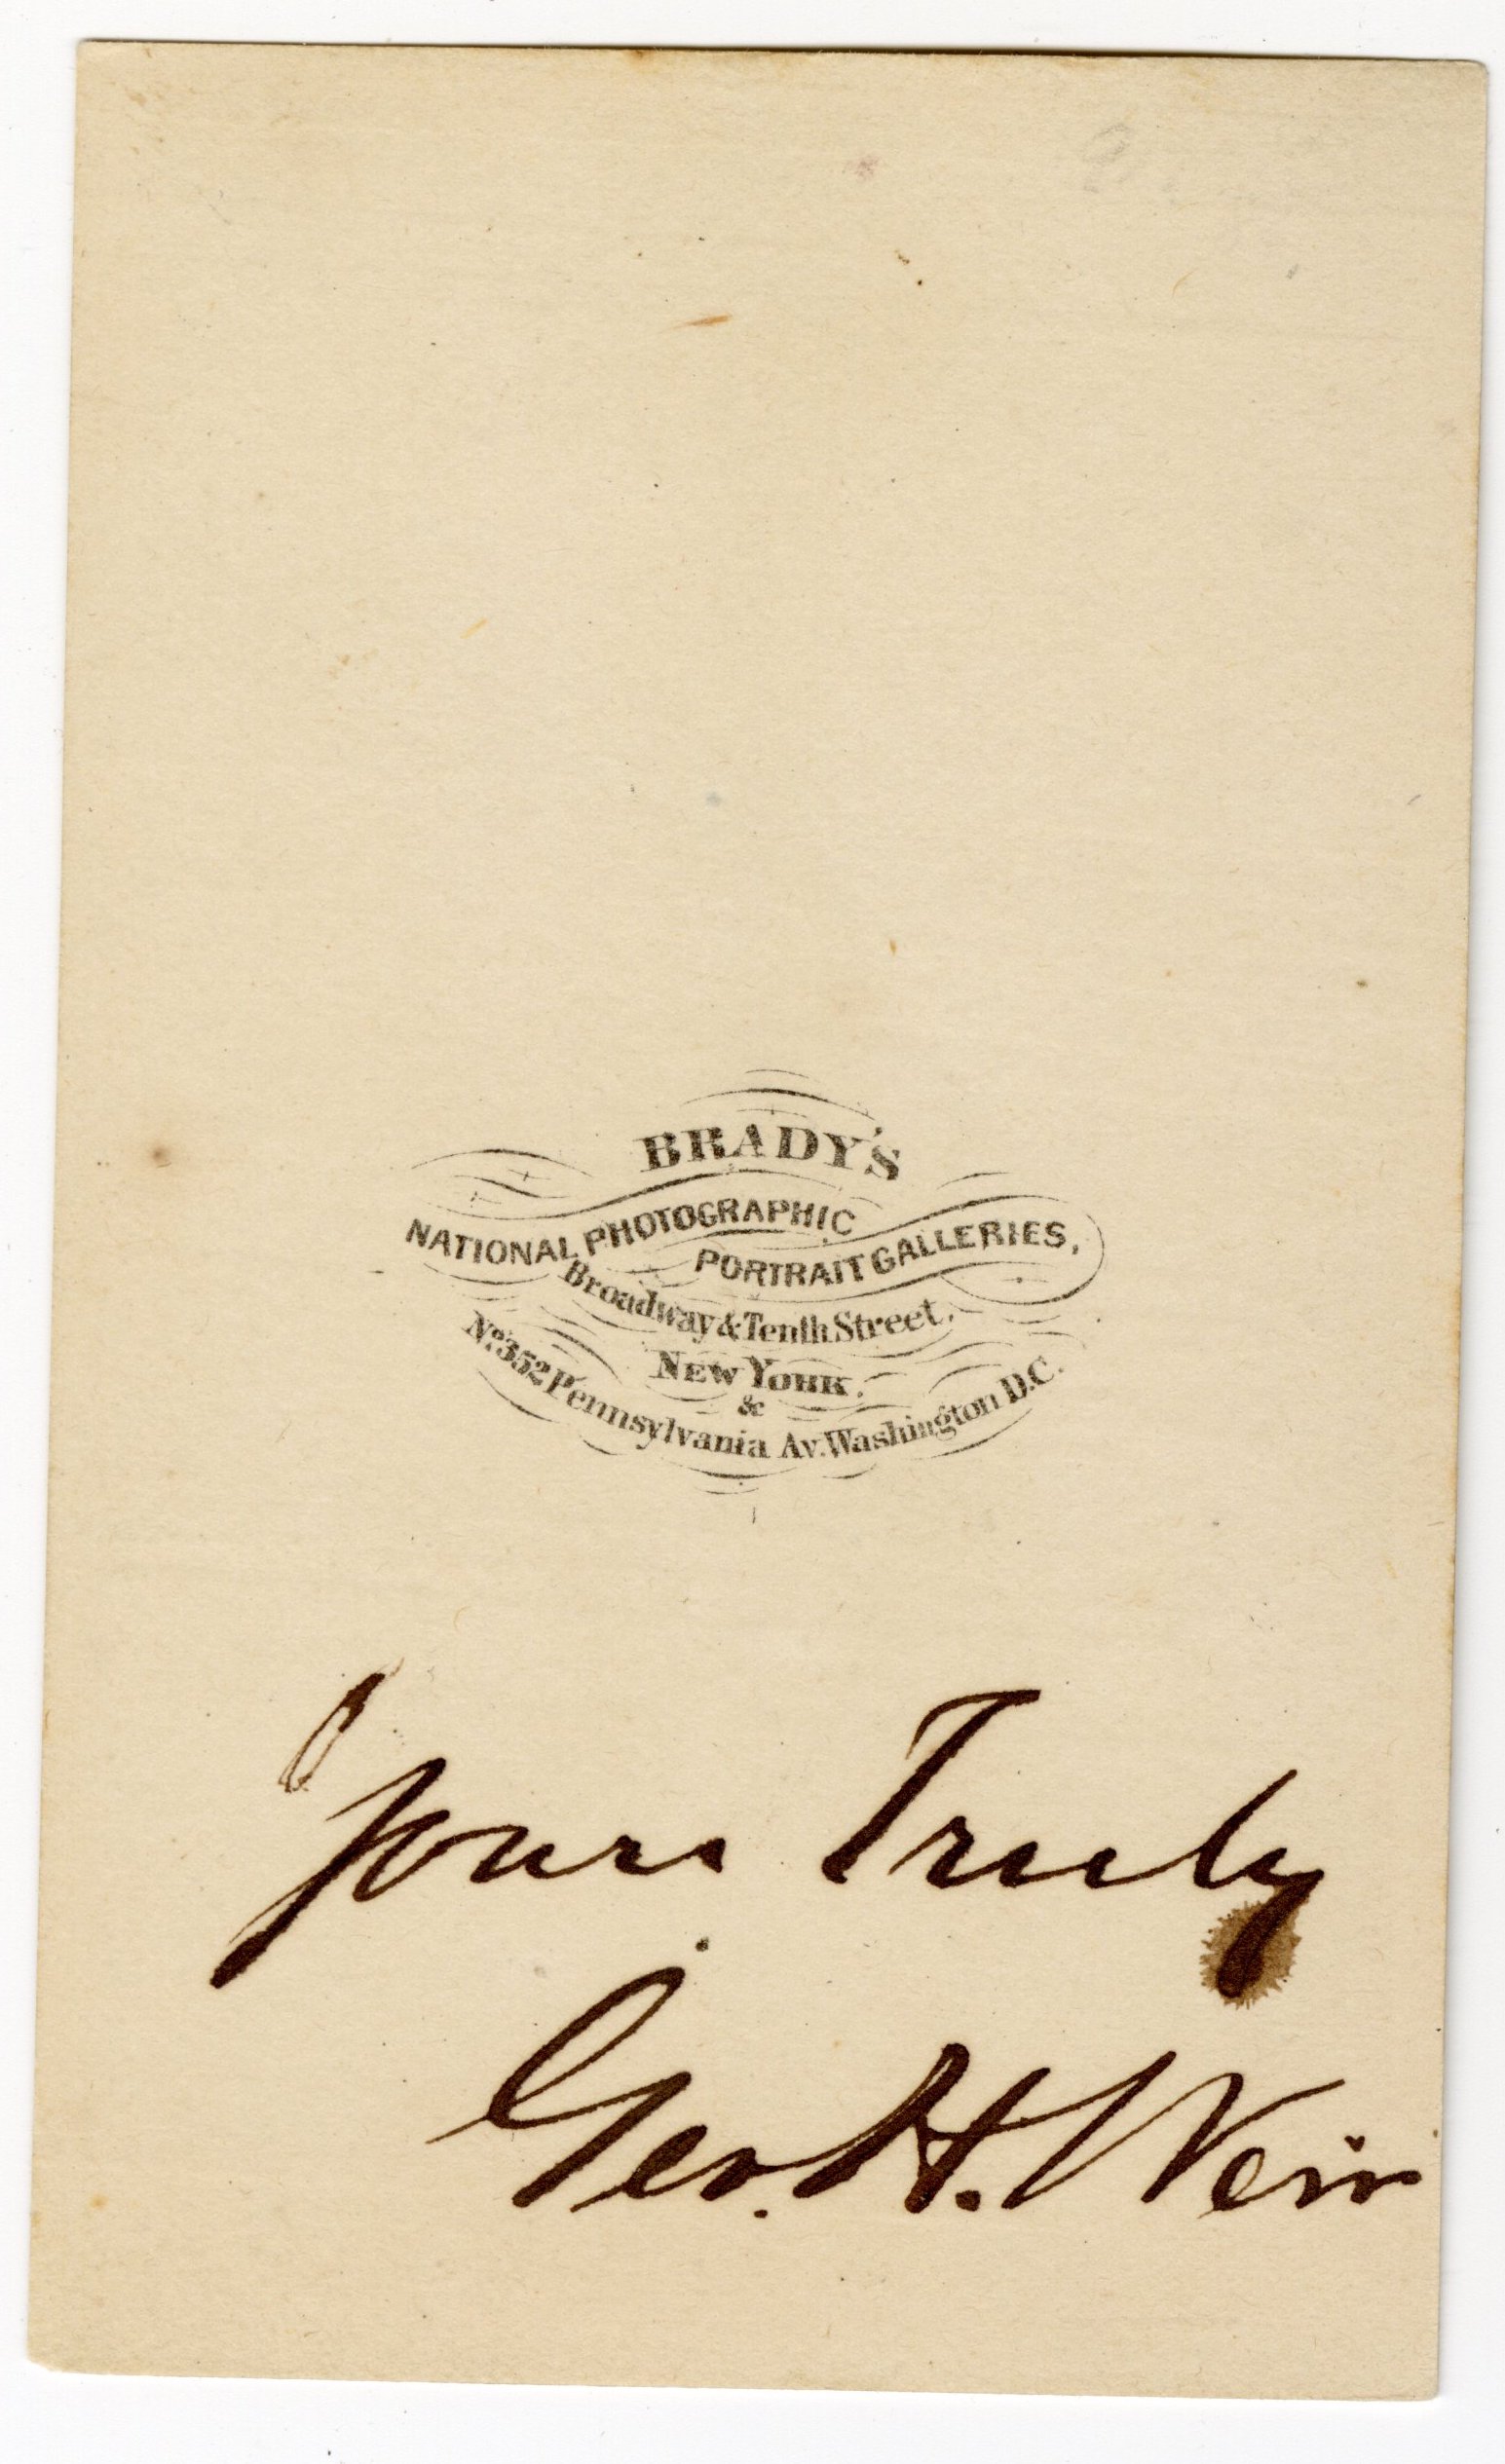 BRADY'S
NATIONAL PHOTOGRAPHIC
PORTRAIT GALLERIES,
Broadway & Tenth Street.
NEW YORK.
&
No. 352 Pennsylvania Av. Washington D.C.
Yours Truly
Geo. H. Weir